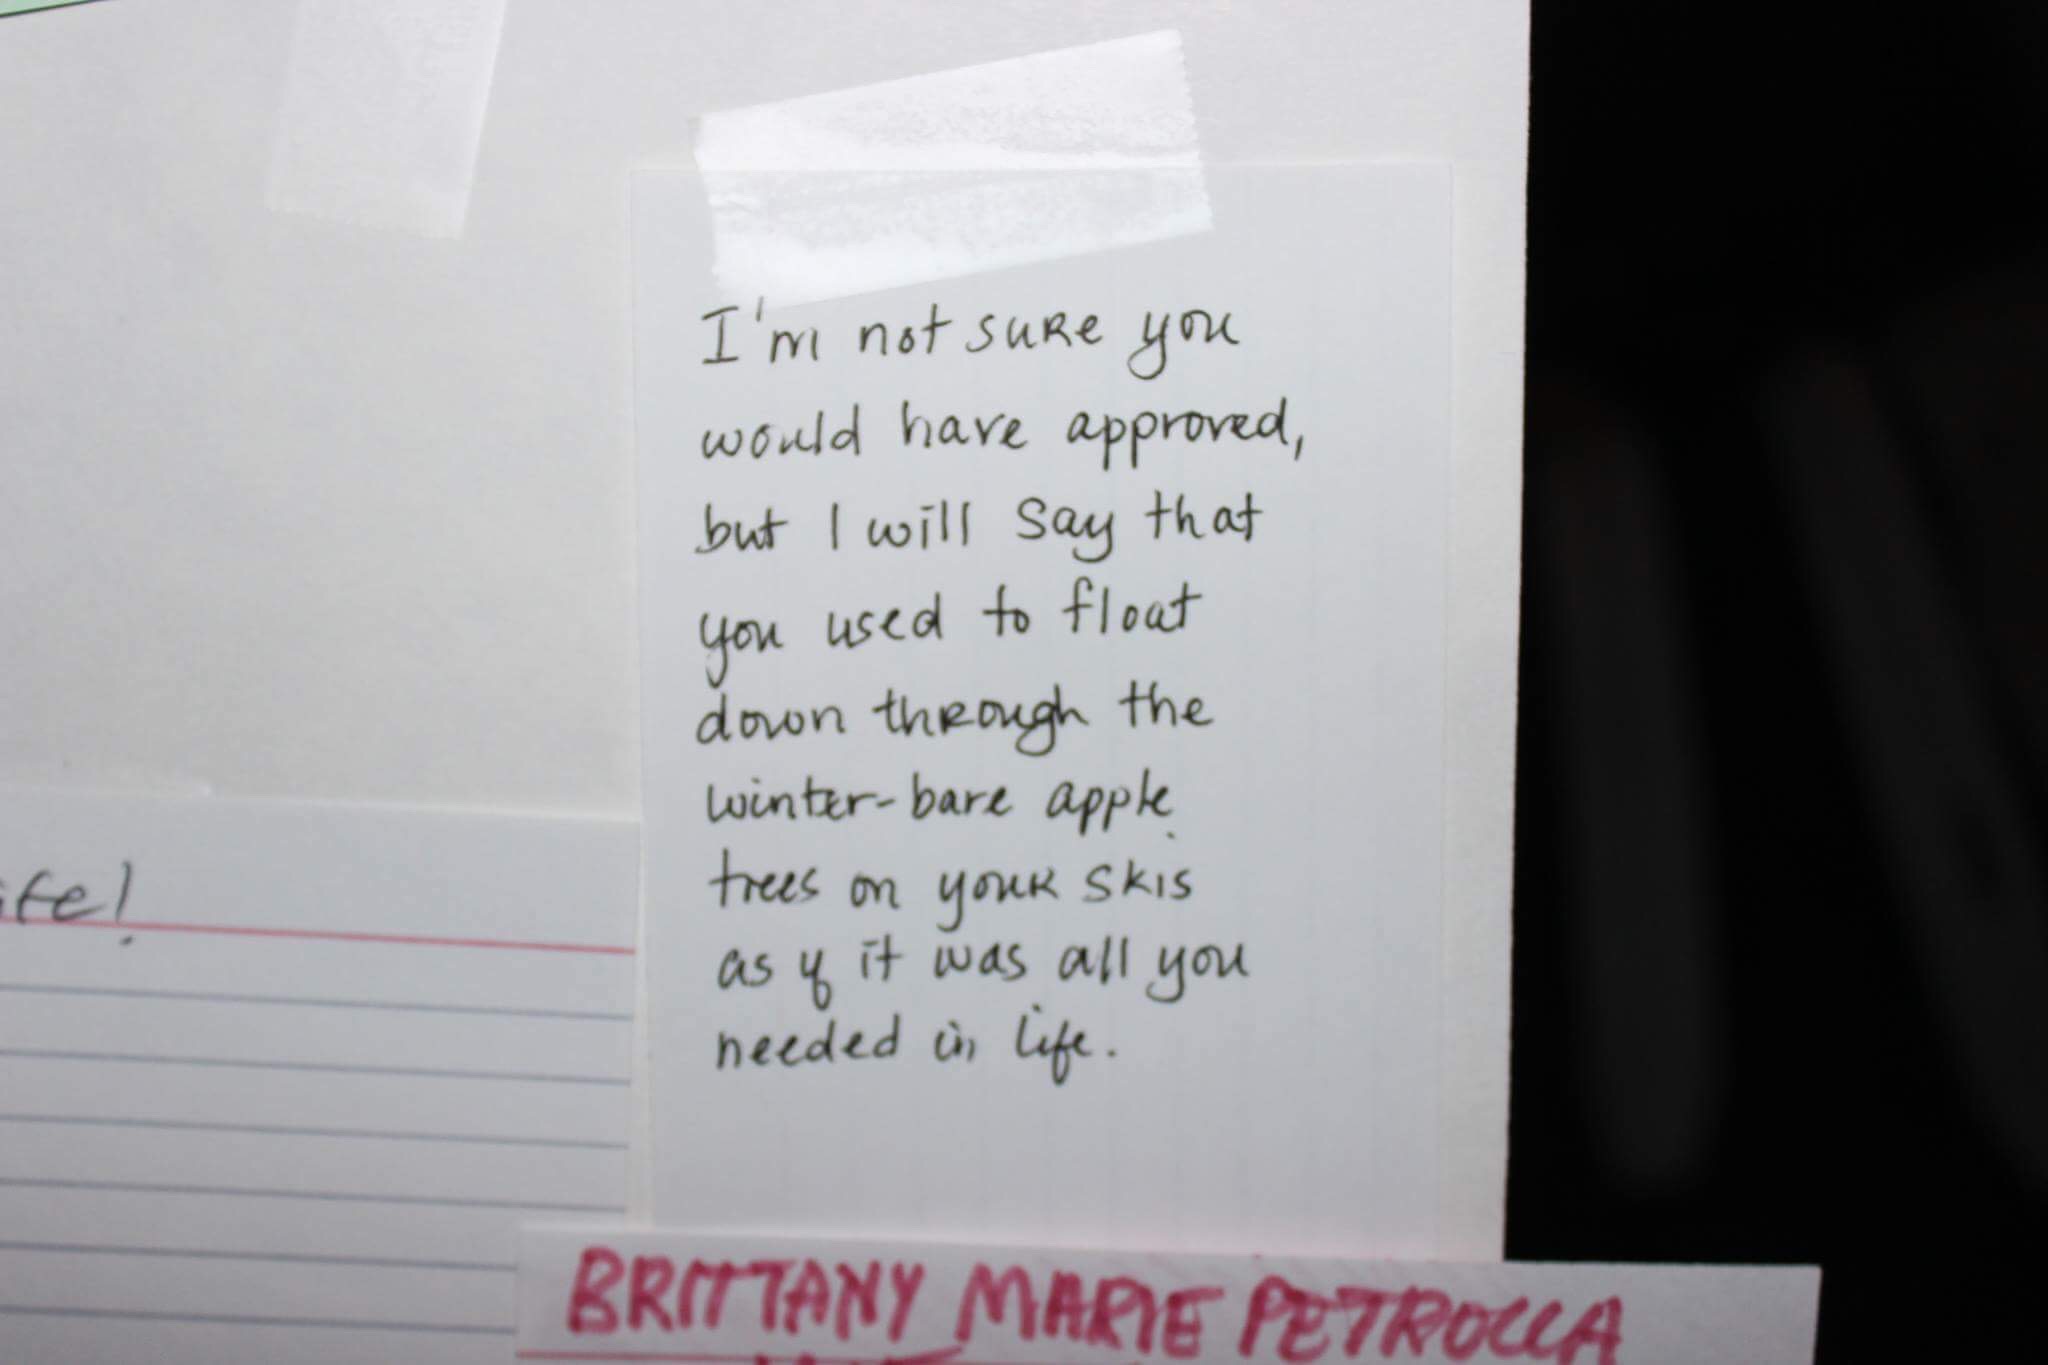 I'm not sure you
would have approved,
but I will say that
you used to float
down through the
winter-bare apple
trees on your skis
as if it was all you
needed in life.
BRITTANY MARIE PETROLLA